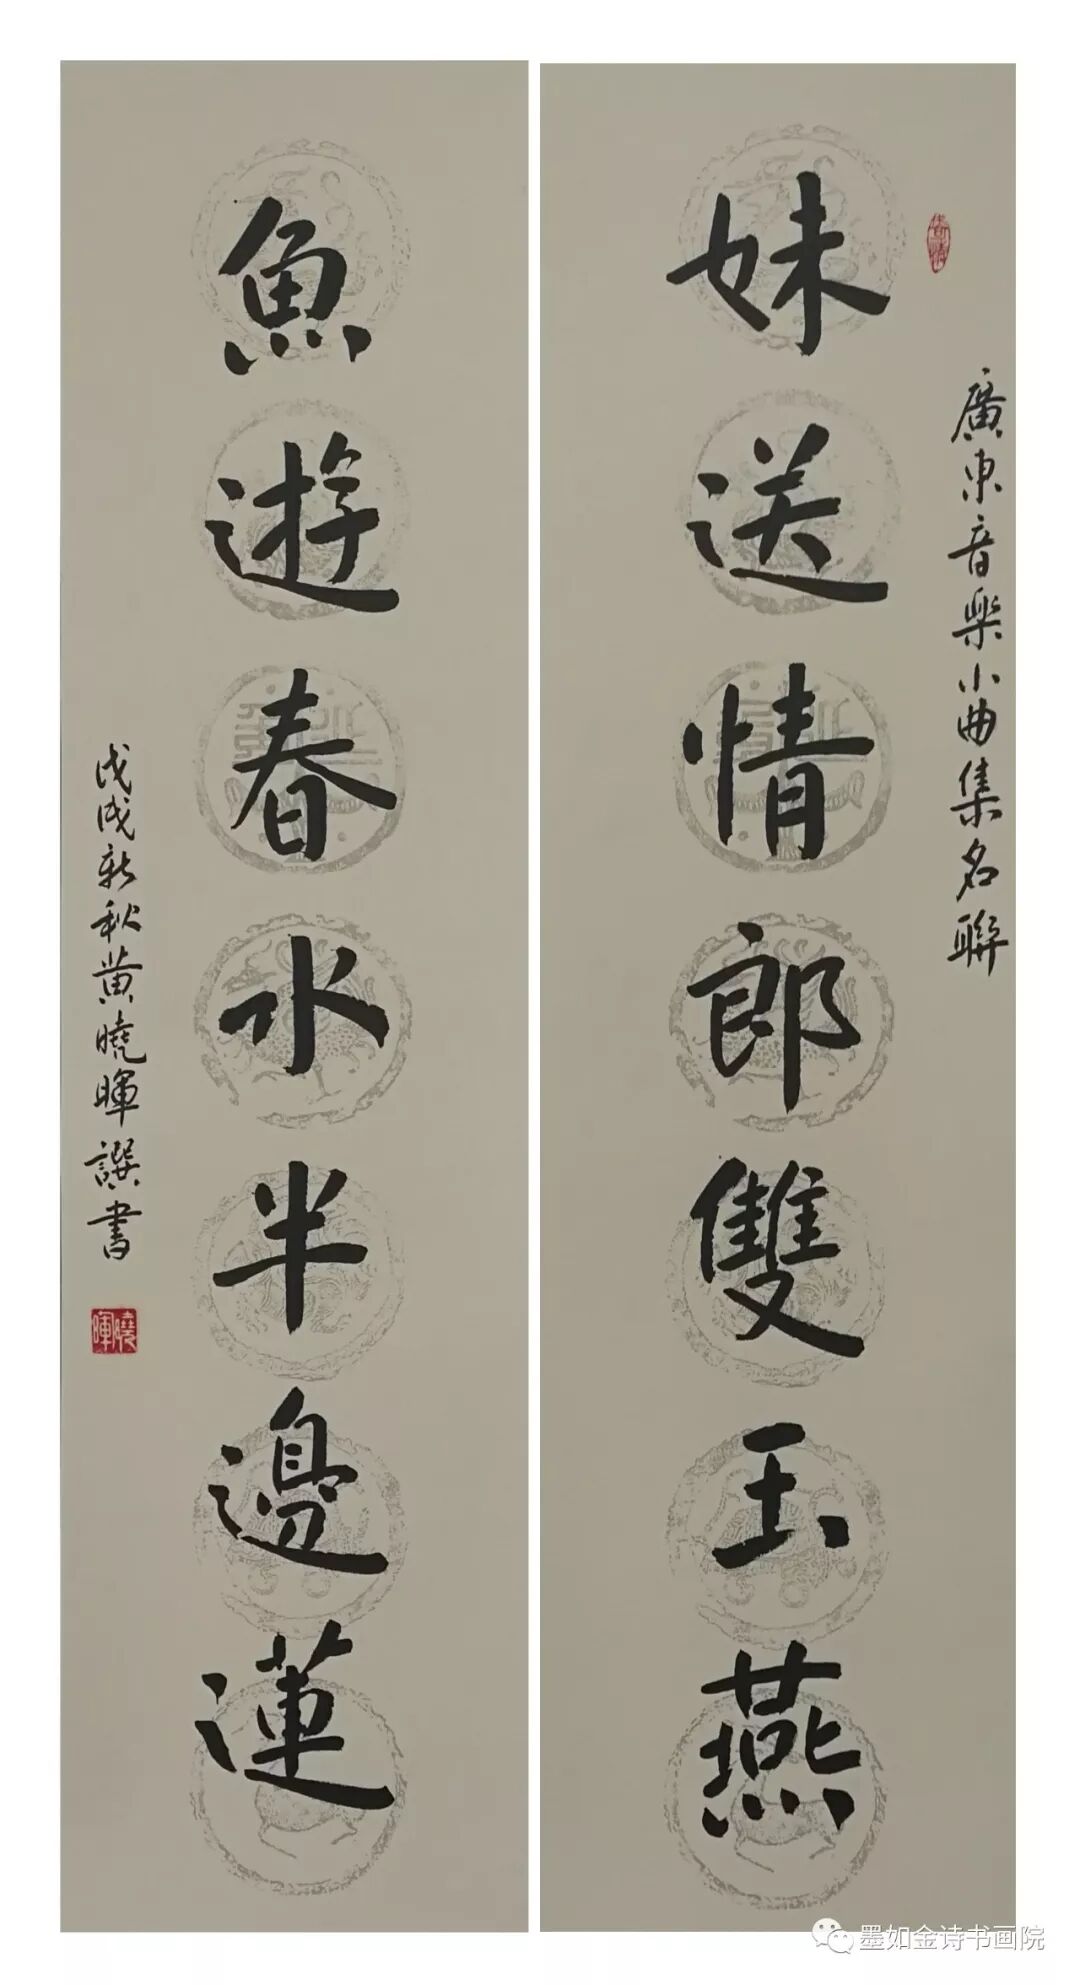 廣東音樂小曲集名聯
妹送情郎雙玉燕
魚遊春水半邊蓮
戊戌新秋黄曉暉譔書
曉暉
墨如金诗书画院